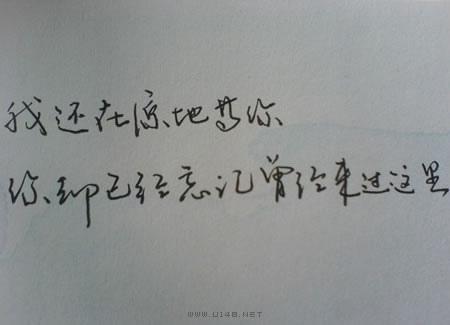 我还在原地等你
你却已经忘记曾经来过这里
WWW.U148.NET